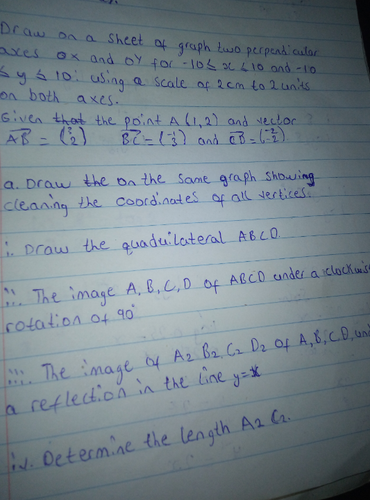 Draw on a sheet of graph two perpendicular
axes OX and OY for -10 ≤ x ≤ 10 and -10
≤ y ≤ 10: using a scale of 2cm to 2 units
on both axes.
Given that the point A(1,2) and vector
AB = ( 2) BC = (-1 3) and CD = (-2 -2)
a. Draw the on the same graph showing
cleaning the coordinates of all vertices.
i. Draw the quaduilateral ABCD
ii. The image A, B, C, D of ABCD under a clockwis
rotation of 90°
iii. The image of A2 B2 C2 D2 of A, B, C, D, un
a reflection in the line y=x
iv. Determine the length A2 C2.